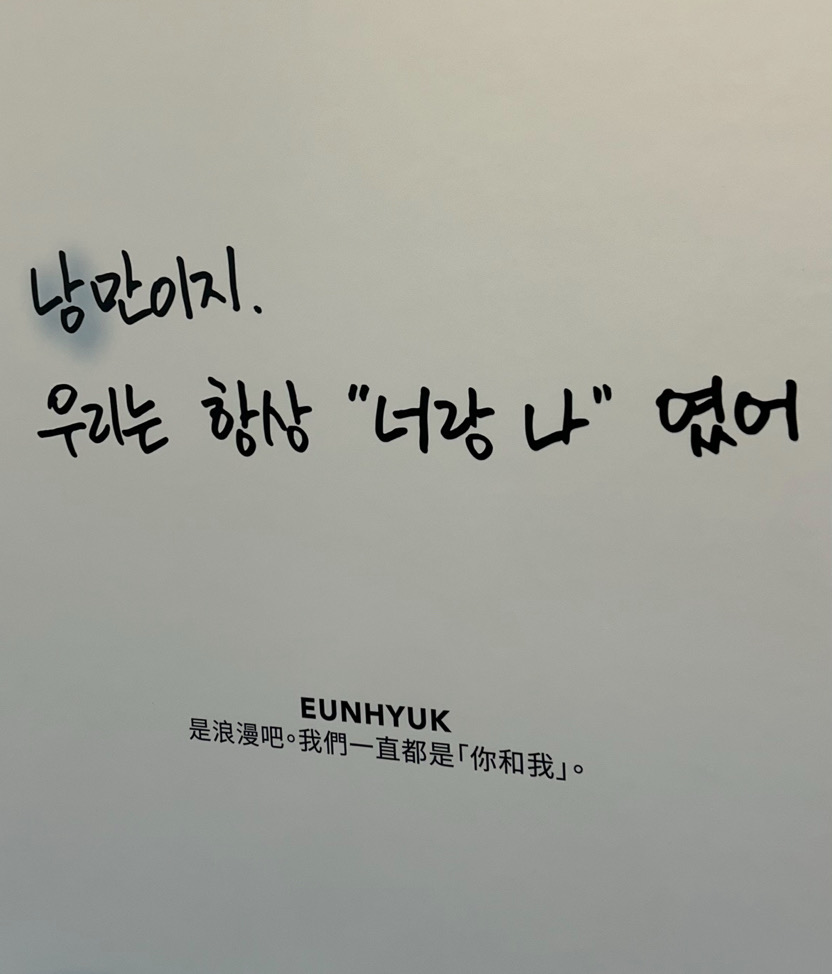 낭만이지.
우리는 항상 "너랑 나" 였어
EUNHYUK
是浪漫吧。我們一直都是「你和我」。